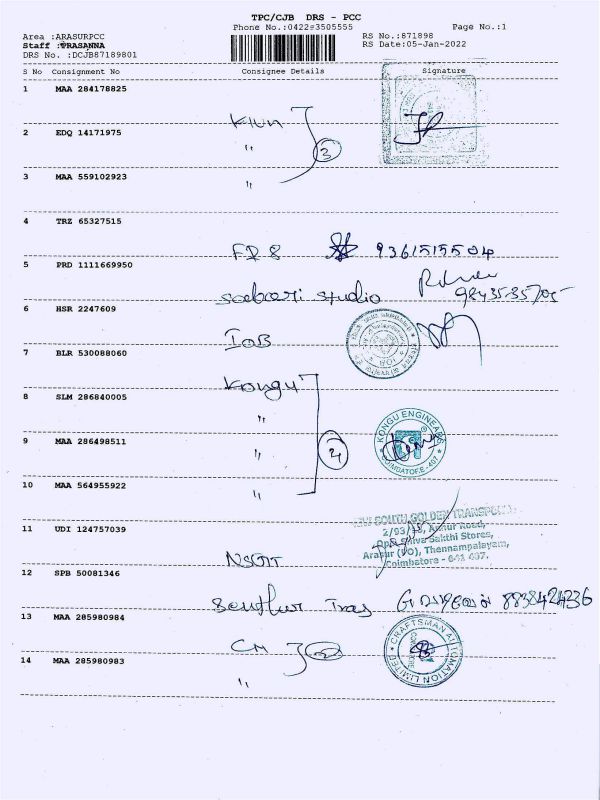 TPC/CJB DRS - PCC
Phone No.:042293505555
Page No.:1
Area :ARASURPCC
RS No.:871898
Staff :PRASANNA
RS Date:05-Jan-2022
DRS No. :DCJB87189801
S No Consignment No Consignee Details Signature
1 MAA 284178825
2 EDQ 14171975
"
3
3 MAA 559102923
"
4 TRZ 65327515
5 PRD 1111669950
Sabari Studio
6 HSR 2247609
IOB
7 BLR 530088060
Kongu
8 SLM 286840005
"
KONGU ENGINEERS
COIMBATORE - 407
9 MAA 286498511
"
4
10 MAA 564955922
"
SOUTH GOLDEN TRANSPORT
2/93/
Road,
Sakthi Stores,
Thennampalayam,
Coimbatore - 641 407.
11 UDI 124757039
NSGTT
12 SPB 50081346
8838424236
13 MAA 285980984
CM
CRAFTSMAN AUTOMATION LIMITED
14 MAA 285980983
"